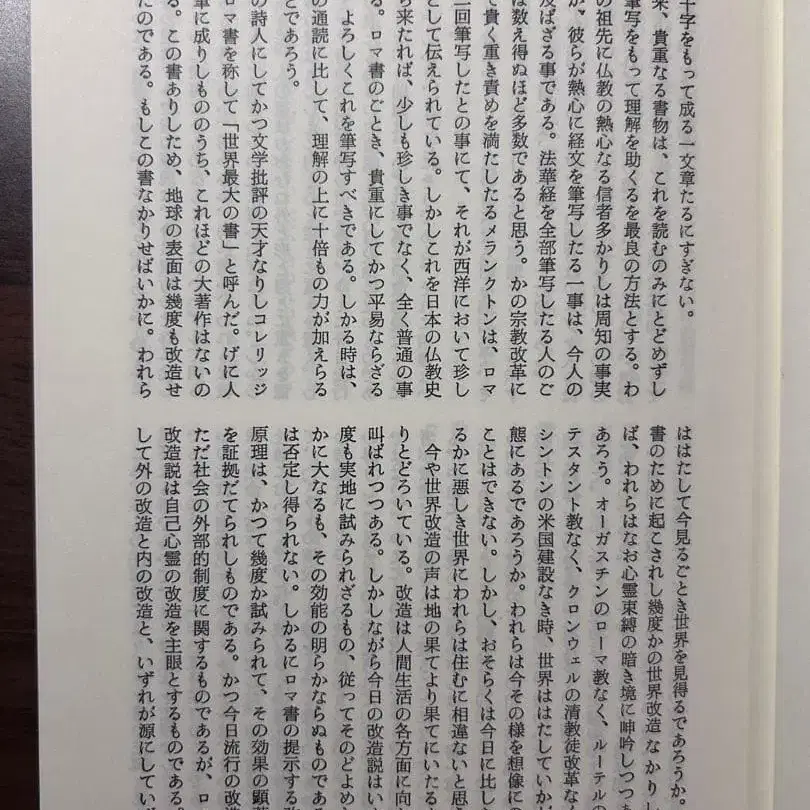 十字をもって成る一文章たるにすぎない。
来、貴重なる書物は、これを読むのみにとどめずし
筆写をもって理解を助くるを最良の方法とする。わ
の祖先に仏教の熱心なる信者多かりしは周知の事実
が、彼らが熱心に経文を筆写したる一事は、今人の
及ばざる事である。法華経を全部筆写したる人のご
は数え得ぬほど多数であると思う。かの宗教改革に
て貴く重き責めを満たしたるメランクトンは、ロマ
二回筆写したとの事にて、それが西洋において珍し
として伝えられている。しかしこれを日本の仏教史
ら来たれば、少しも珍しき事でなく、全く普通の事
る。ロマ書のごとき、貴重にしてかつ平易ならざる
よろしくこれを筆写すべきである。しかる時は、
の通読に比して、理解の上に十倍もの力が加えらる
とであろう。
の詩人にしてかつ文学批評の天才なりしコレリッジ
ロマ書を称して「世界最大の書」と呼んだ。げに人
筆に成りしもののうち、これほどの大著作はないの
る。この書ありしため、地球の表面は幾度も改造せ
たのである。もしこの書なかりせばいかに。われら
ははたして今見るごとき世界を見得るであろうか
書のために起こされし幾度かの世界改造なかり
ば、われらはなお心霊束縛の暗き境に呻吟しつつ
あろう。オーガスチンのローマ教なく、ルーテルの
テスタント教なく、クロンウェルの清教徒改革な
シントンの米国建設なき時、世界ははたしていか
態にあるであろうか。われらは今その様を想像に
ことはできない。しかし、おそらくは今日に比し
るかに悪しき世界にわれらは住むに相違ないと思
今や世界改造の声は地の果てより果てにいたる
りとどろいている。改造は人間生活の各方面に向
叫ばれつつある。しかしながら今日の改造説はい
度も実地に試みられざるもの、従ってそのどよめ
かに大なるも、その効能の明らかならぬものであ
は否定し得られない。しかるにロマ書の提示する
原理は、かつて幾度か試みられて、その効果の顕
を証拠だてられしものである。かつ今日流行の改
ただ社会の外部的制度に関するものであるが、ロ
改造説は自己心霊の改造を主眼とするものである
して外の改造と内の改造と、いずれが源にしてい